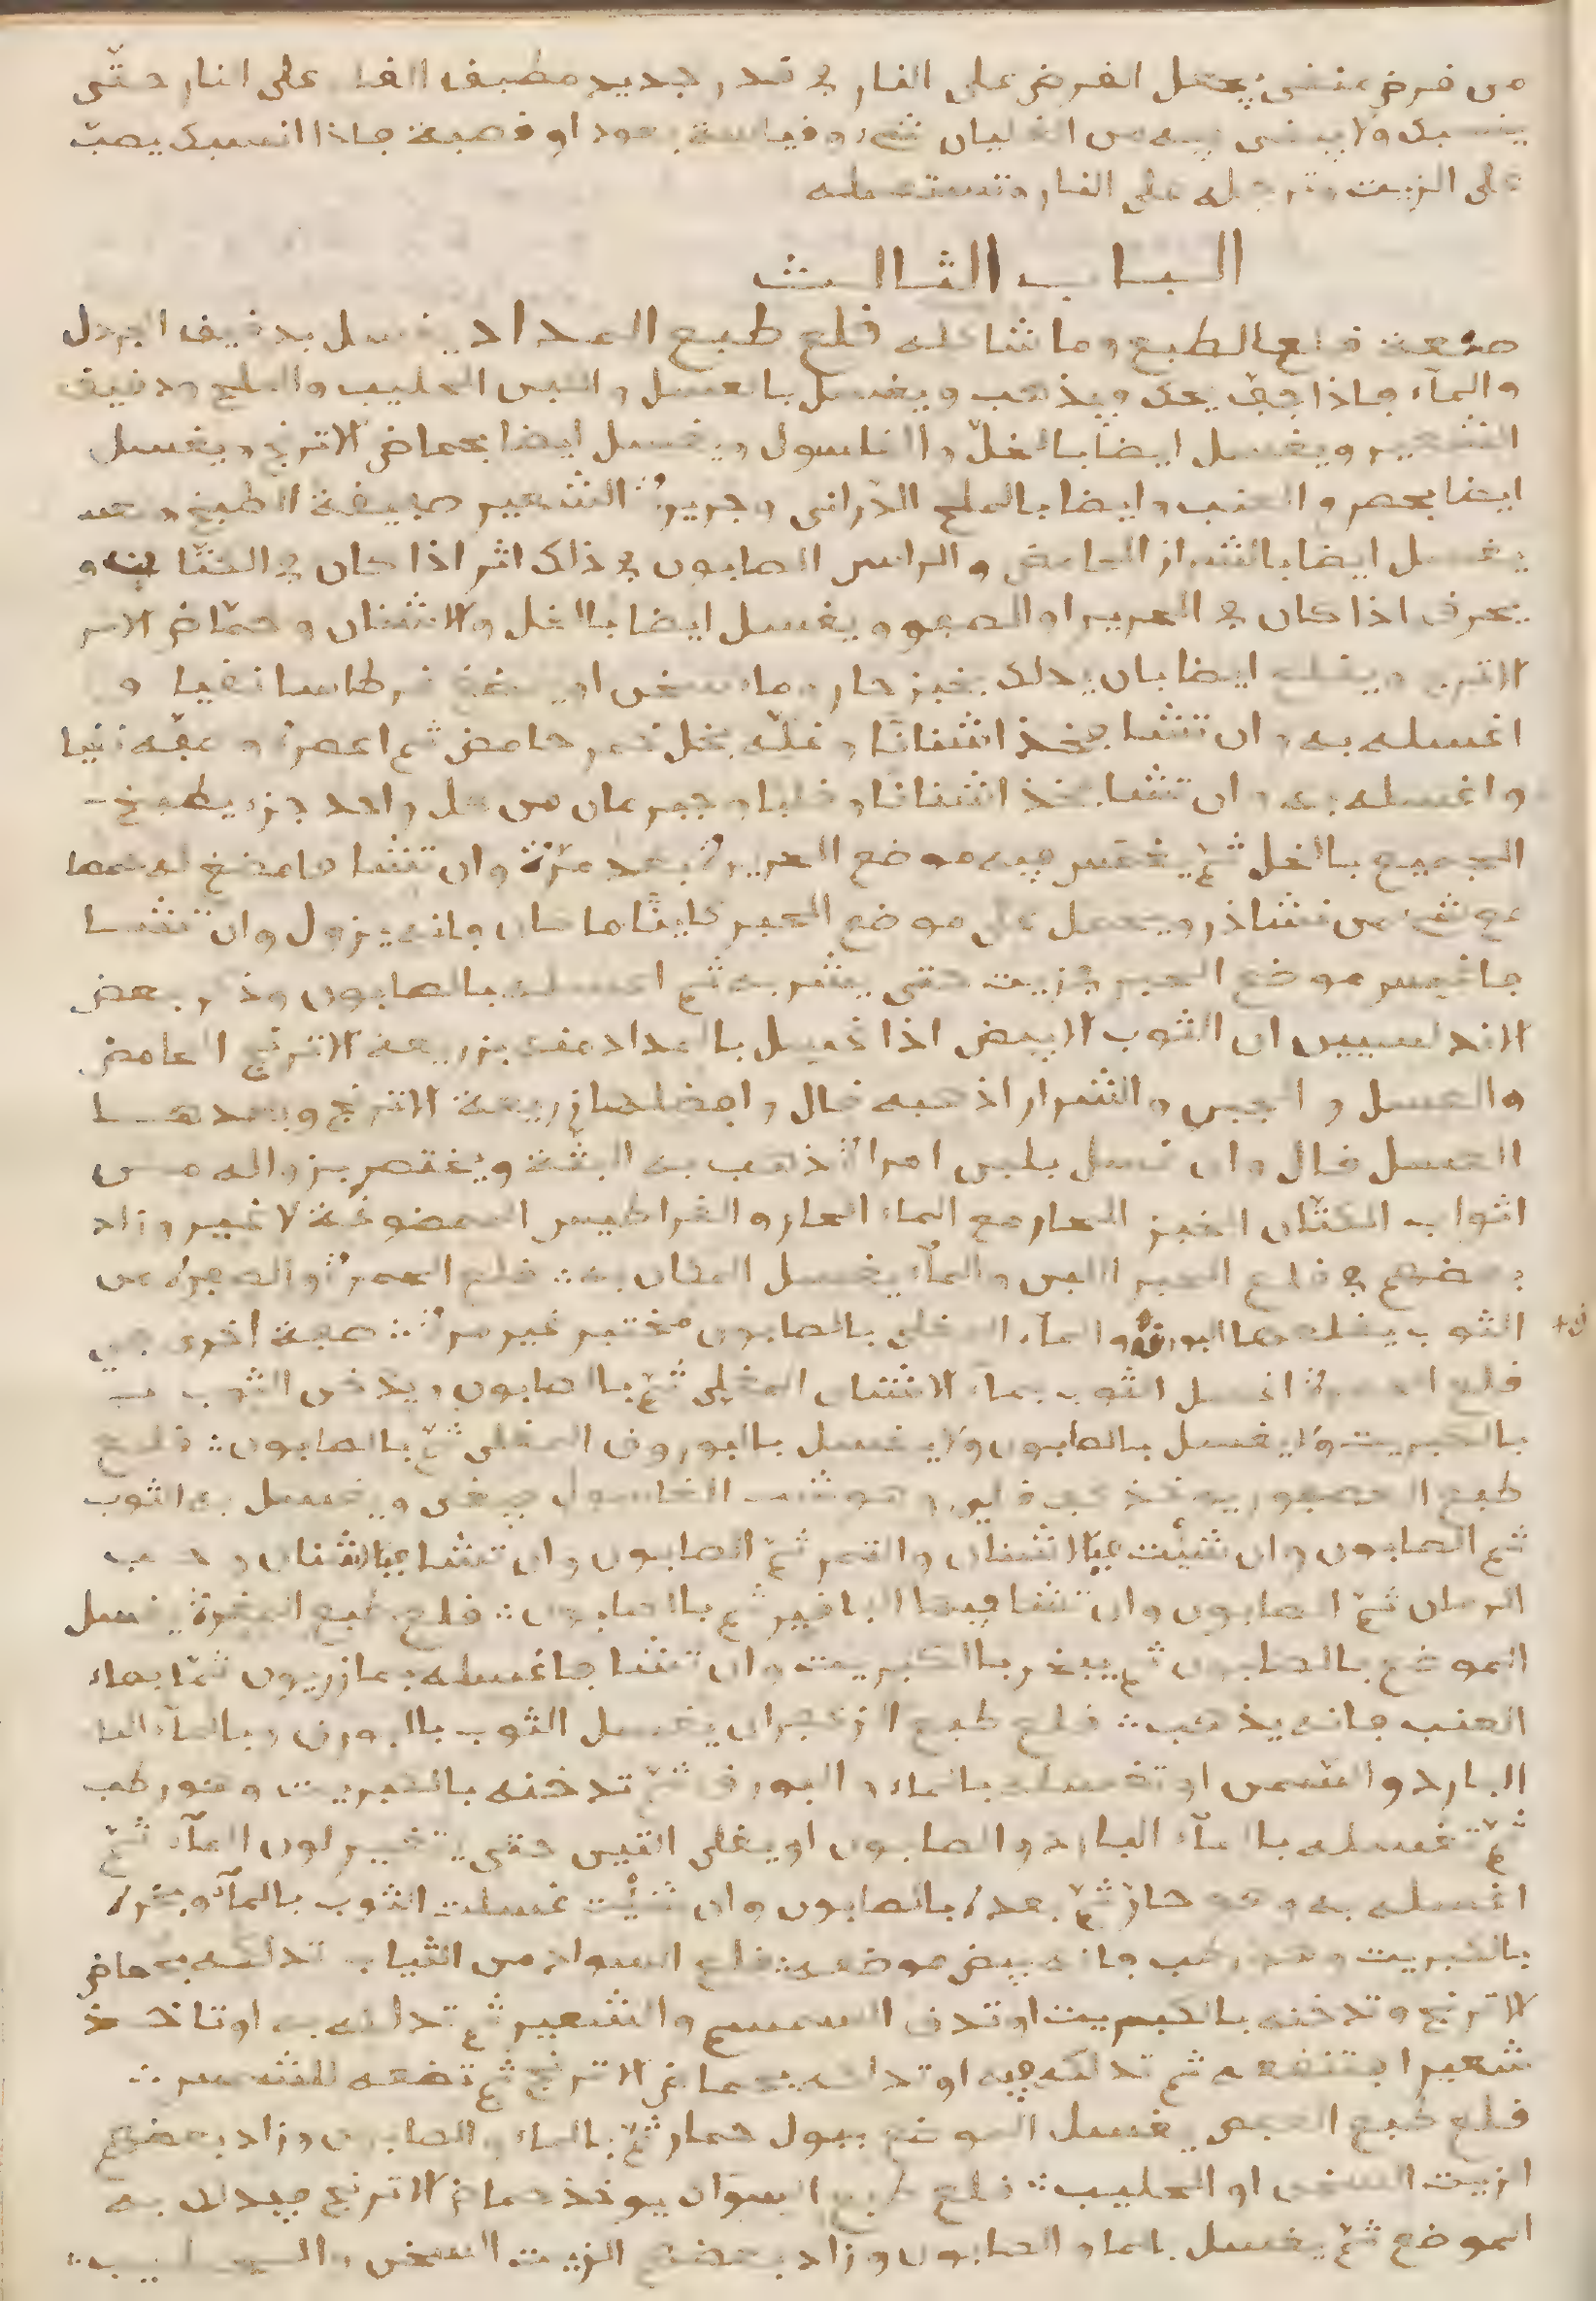 من فرض منفى يجعل الفرض على النار في قدر جديد مطبف الغلـ على النار حتّى
ينسبك ولا يبقى فيه من الغليان شىء وفياسة بعود او فصبة فاذا انسبك يصبّ
على الزيت وترجله على النار وتستعمله
الباب الثالث
صنعة فلع الطبع وما شاكله فلع طبع المداد يغسل بدفيف الجردل
والمآء فاذا جفّ يحك ويذهب ويغسل بالعسل واللبن الحليب والملح ودفيف
الشعير ويغسل ايضا بالخلّ والغاسول ويغسل ايضا بحماض الاترنج ويغسل
ايضا بحصر والعنب وايضا بالملح الدراني الشعير الطبخ
يغسل ايضا بالشراز الحامض والراس الصابون في ذلك اثر اذا كان في الكتّان و
يحرف اذا كان في الحرير او الصوف ويغسل ايضا بالخل والاشنان وحمّاض الاتر
الاترج ويفلع ايضا بان يدلك بخبز حار وماء سخن او يمضغ فرطاسا نفيا و
اغسله به وان تشا فخذ اشنانا وغلّه بخل خمر حامض ثم اعصره و
واغسله به وان تشا فخذ اشنانا وفليا وجير من كل واحد جزء يطبخ
الجميع بالخل ثمّ يغمس فيه موضع الحبر مرّة بعد مرّة وان تشا فامضغ
مع شىء من نشاذر ويجعل على موضع الحبر كاينًا ما كان فانه يزول وان تشا
فاغمس موضع الحبر في زيت حتى يشربه ثم اغسله بالصابون وذكر بعض
الاندلسيين ان الثوب الابيض اذا غسل بالمداد بزريعة الاترنج الحامض
والعسل والجبن والشراز اذهبه فال وافضلها زريعة الاترنج وبعدها
العسل فال وان غسل بلبن امراة ذهب به البتّة ويختصر بزواله من
اثواب الكتّان الخبز الحار مع الماء الحار والفراطيس الممضوغة لا غير وزاد
بعضهم في فلع الحبر اللبن والمآء يغسل المكان به فلع الحمرة والصفرة من
الثوب يفلعهما البورق والمآء المغلى بالصابون مختبر غير مرة صفة اخرى في
فلع الحمرة اغسل الثوب بماء الاشنان المغلى ثمّ بالصابون ويدخن الثوب
بالكبريت ولا يغسل بالصابون ولا يغسل بالبورق المغلى ثمّ بالصابون فلع
طبع العصفور يوخذ وهو شب الغاسول فيغلى ويغسل به الثوب
ثم الصابون وان شئت فبالاشنان والتمر ثمّ الصابون وان تشا فبالاشنان وحب
الرمان ثمّ الصابون وان تشا فبماء البافير ثم بالصابون فلع طبع المغرة يغسل
الموضع بالصابون ثم يبخر بالكبريت وان تشا فاغسله بمازريون ثمّا بماء
العنب فانه يذهب فلع طبع الزعفران يغسل الثوب بالبورق وبالمآء الما
البارد والشمس او تغسله بالماء والبورق ثمّ تدخنه بالكبريت وهو رطب
ثمّ تغسله بالمآء البارد والصابون او يغلى التين حتى يتغير لون المآء ثمّ
اغسله به وهو حارّ ثمّ بعده بالصابون وان شئت غسلت الثوب بالمآء وبخره
بالكبريت وهو رطب فانه يبيض موضعه فلع السواد من الثياب تدلكه بحماض
الاترنج وتدخنه بالكبريت او تدق السمسم والشعير ثم تدلكه به او تاخذ
شعيرا فتنفعه ثم تدلكه فيه او تدلكه بحماض الاترنج ثم تضعه للشمس
فلع طبع يغسل الموضع ببول حمار ثمّ بالماء والصابون وزاد بعضهم
الزيت السخن او الحليب فلع طبع السواد يوخذ حماض الاترنج فيدلك به
الموضع ثمّ يغسل بالماء والصابون وزاد بعضهم الزيت السخن والحليب